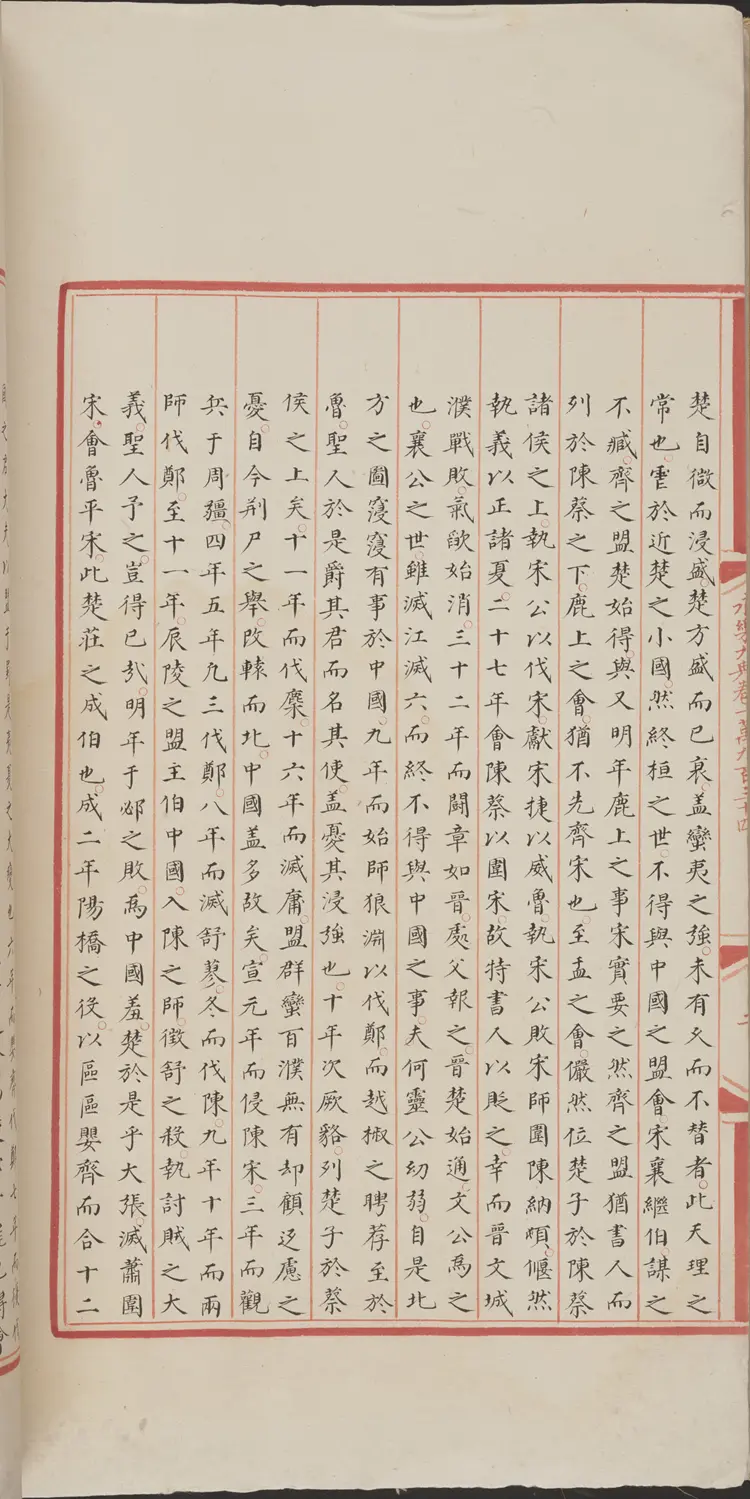 永樂大典卷一萬九百三十四
楚自微而浸盛。楚方盛而已衰。蓋蠻夷之強。未有久而不替者。此天理之
常也。霍於近楚之小國。然終桓之世。不得與中國之盟會。宋襄繼伯。謀之
不臧。齊之盟楚始得與。又明年鹿上之事宋實要之然齊之盟猶書人而
列於陳蔡之下。鹿上之會。猶不先齊宋也。至盂之會。儼然位楚子於陳蔡
諸侯之上。執宋公以伐宋。獻宋捷以威魯。執宋公敗宋師圍陳納頓。偃然
執義以正諸夏。二十七年會陳蔡以圍宋。故特書人以貶之。幸而晉文城
濮戰敗。氣燄始消。三十二年而鬪章如晉。處父報之。晉楚始通。文公為之
也。襄公之世。雖滅江滅六。而終不得與中國之事。夫何靈公幼弱。自是北
方之圖寖寖有事於中國。九年而始師狼淵以伐鄭。而越椒之聘荐至於
魯。聖人於是爵其君而名其使。蓋憂其浸強也。十年次厥貉。列楚子於蔡
侯之上矣。十一年而伐麇。十六年而滅庸。盟群蠻百濮無有却顧迟慮之
憂。自今荊尸之舉。改轅而北。中國蓋多故矣。宣元年而侵陳宋。三年而觀
兵于周疆。四年五年九三伐鄭。八年而滅舒蓼。冬而伐陳。九年十年而兩
師伐鄭。至十一年。辰陵之盟主伯中國。入陳之師。徵舒之殺。執討賊之大
義。聖人予之。豈得已哉。明年于邲之敗。為中國羞。楚於是乎大張。滅蕭圍
宋。會魯平宋。此楚莊之成伯也。成二年陽橋之役。以區區嬰齊而合十二